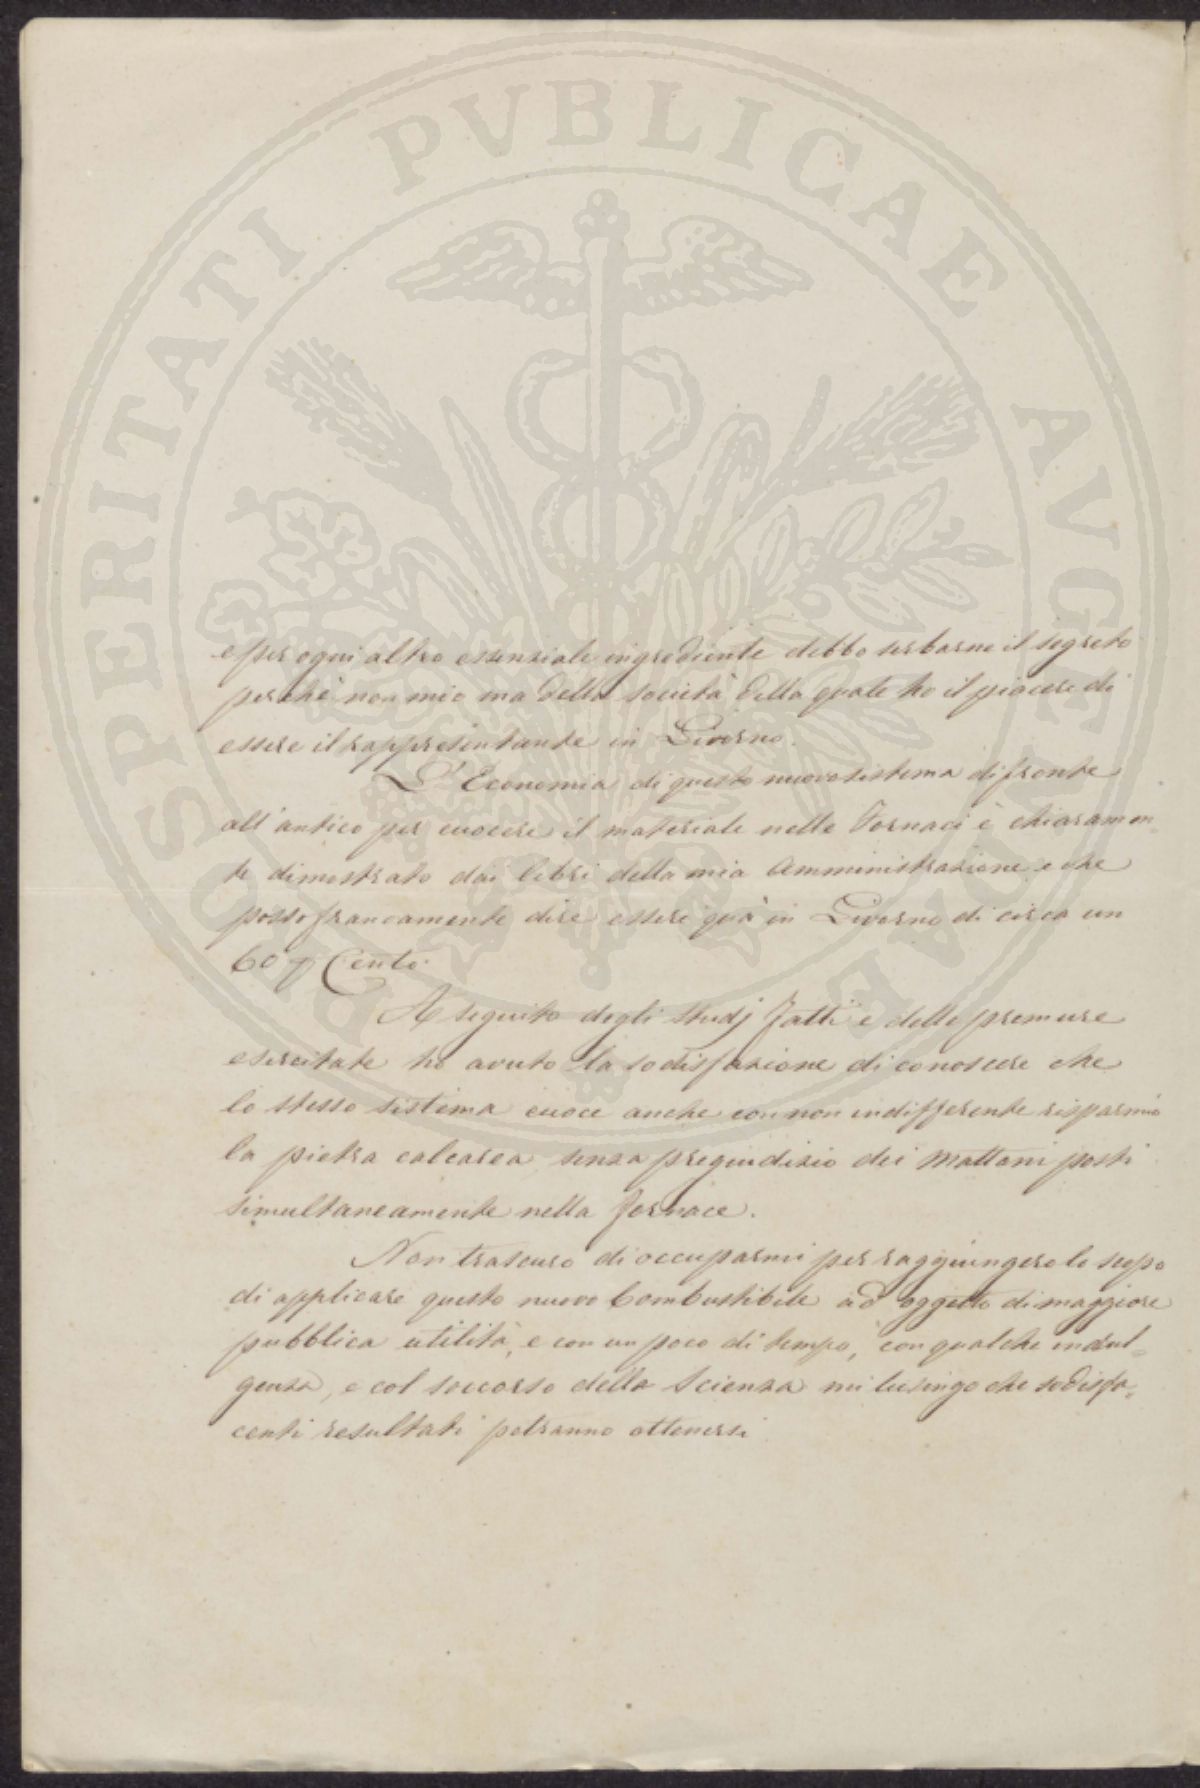 PROSPERITATI PVBLICAE AVGENDAE
e per ogni altro essenziale ingrediente debbo serbarne il segreto
perchè non mio ma della società della quale ho il piacere di
essere il rappresentante in Livorno.
L'Economia di questo nuovo sistema di fronte
all'antico per cuocere il materiale nelle Fornaci è chiaramen=
te dimostrato dai libri della mia Amministrazione e che
posso francamente dire essere quà in Livorno di circa un
60 p Cento.
A seguito degli studj fatti e delle premure
esercitate ho avuto la sodisfazione di conoscere che
lo stesso sistema cuoce anche con non indifferente risparmio
la pietra calcarea senza pregiudizio dei Mattoni posti
simultaneamente nella fornace.
Non trascuro di occuparmi per raggiungere lo scopo
di applicare questo nuovo Combustibile ad oggetto di maggiore
pubblica utilità, e con un poco di tempo, con qualche indul=
genza, e col soccorso della Scienza mi lusingo che sodisfa=
centi resultati potranno ottenersi